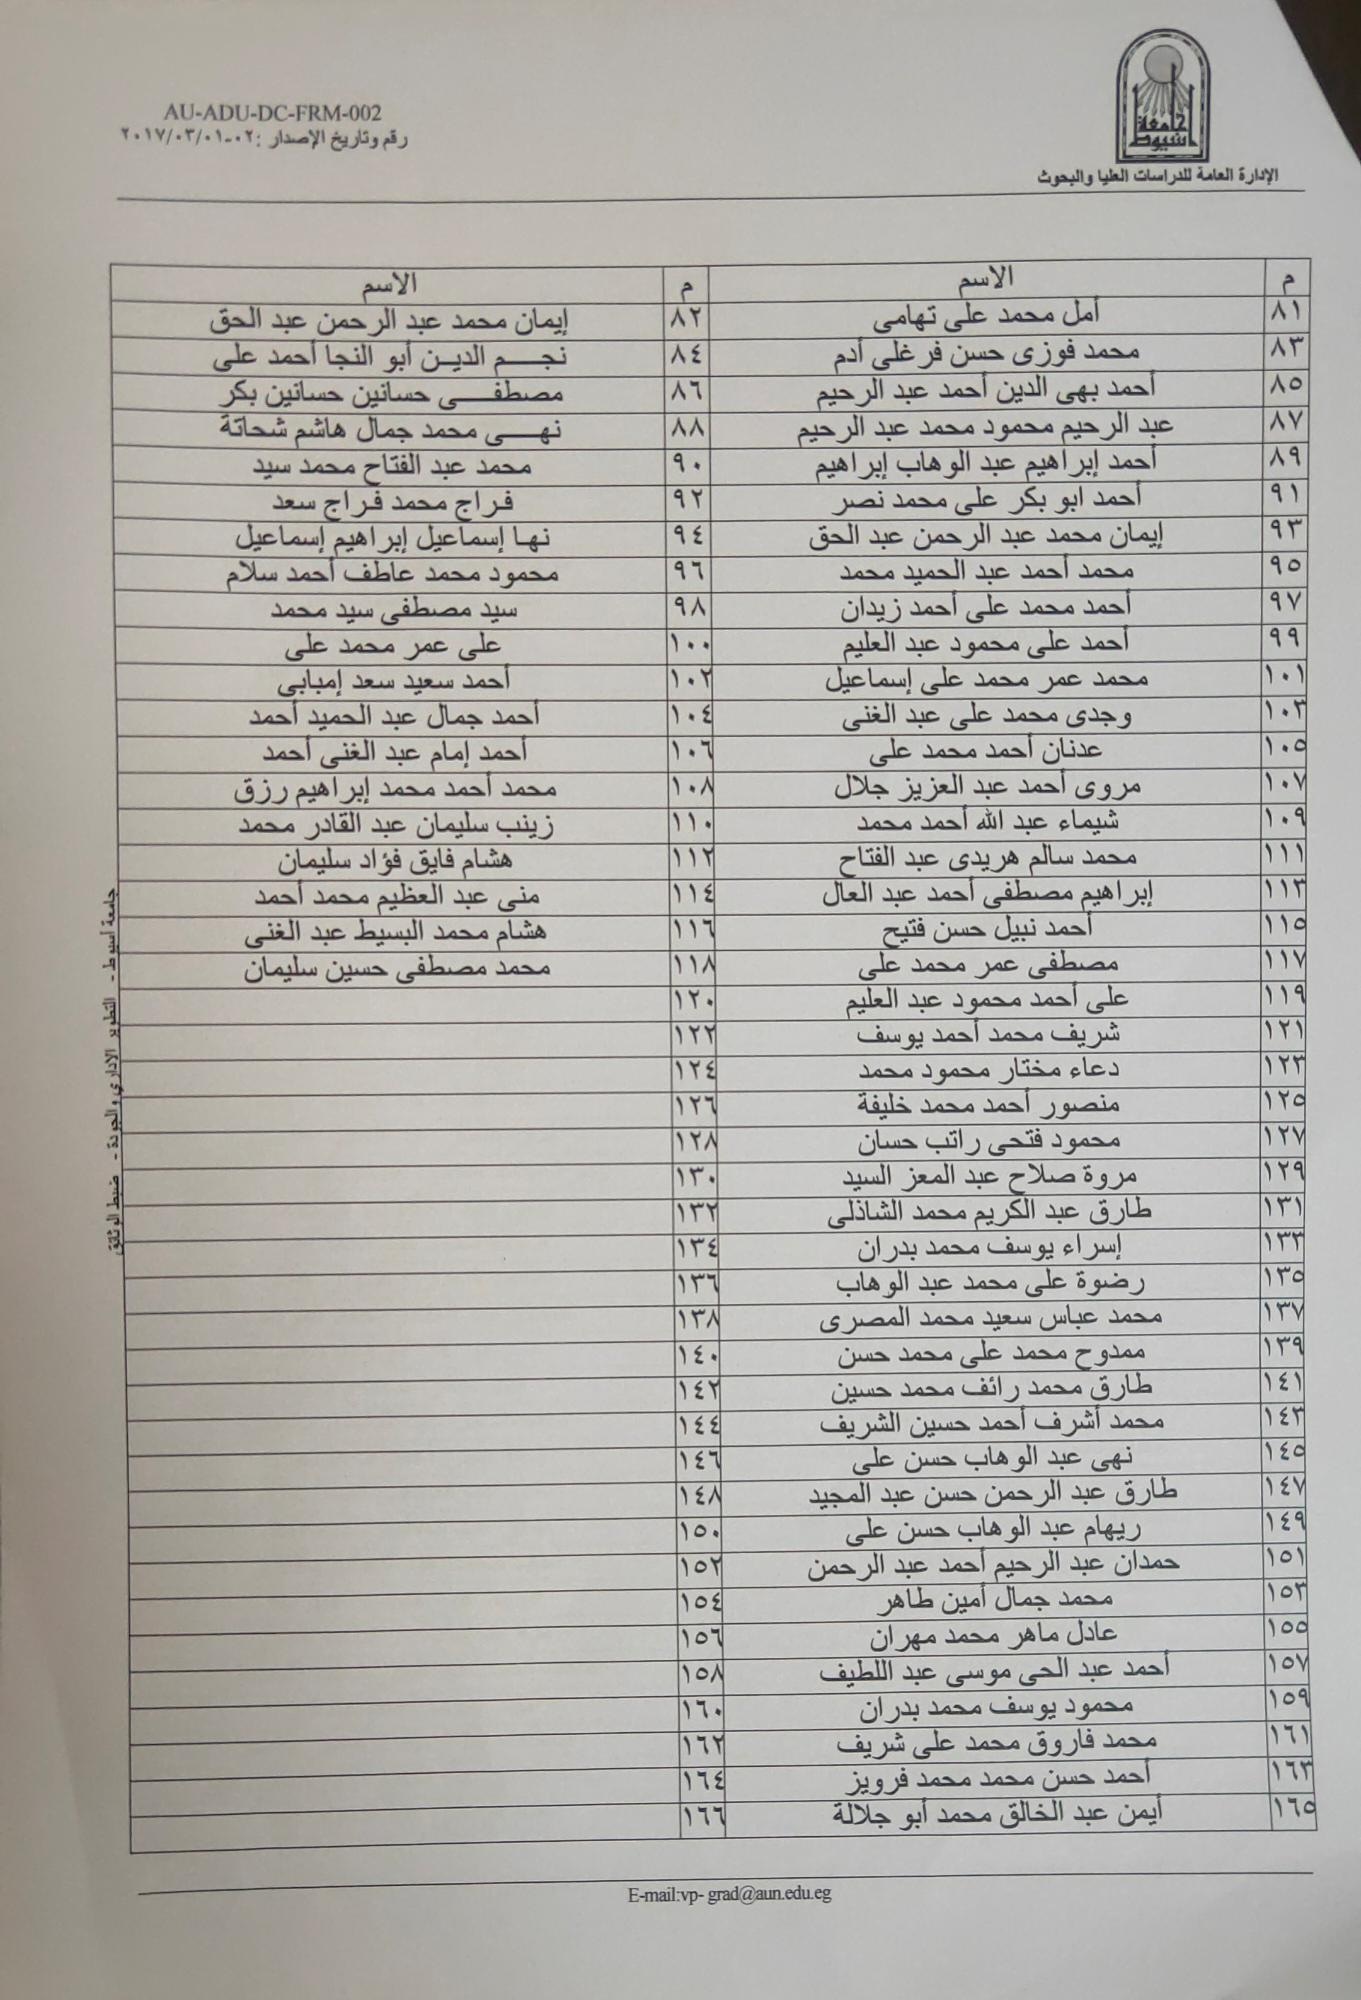 AU-ADU-DC-FRM-002
رقم وتاريخ الإصدار :٠٢-٢٠١٧/٠٣/٠١
جامعة
أسيوط
الإدارة العامة للدراسات العليا والبحوث
م الاسم م الاسم
٨١ أمل محمد على تهامى ٨٢ إيمان محمد عبد الرحمن عبد الحق
٨٣ محمد فوزى حسن فرغلى أدم ٨٤ نجم الدين أبو النجا أحمد على
٨٥ أحمد بهى الدين أحمد عبد الرحيم ٨٦ مصطفى حسانين حسانين بكر
٨٧ عبد الرحيم محمود محمد عبد الرحيم ٨٨ نهى محمد جمال هاشم شحاتة
٨٩ أحمد إبراهيم عبد الوهاب إبراهيم ٩٠ محمد عبد الفتاح محمد سيد
٩١ أحمد ابو بكر على محمد نصر ٩٢ فراج محمد فراج سعد
٩٣ إيمان محمد عبد الرحمن عبد الحق ٩٤ نها إسماعيل إبراهيم إسماعيل
٩٥ محمد أحمد عبد الحميد محمد ٩٦ محمود محمد عاطف أحمد سلام
٩٧ أحمد محمد على أحمد زيدان ٩٨ سيد مصطفى سيد محمد
٩٩ أحمد على محمود عبد العليم ١٠٠ على عمر محمد على
١٠١ محمد عمر محمد على إسماعيل ١٠٢ أحمد سعيد سعد إمبابى
١٠٣ وجدى محمد على عبد الغنى ١٠٤ أحمد جمال عبد الحميد أحمد
١٠٥ عدنان أحمد محمد على ١٠٦ أحمد إمام عبد الغنى أحمد
١٠٧ مروى أحمد عبد العزيز جلال ١٠٨ محمد أحمد محمد إبراهيم رزق
١٠٩ شيماء عبد الله أحمد محمد ١١٠ زينب سليمان عبد القادر محمد
١١١ محمد سالم هريدى عبد الفتاح ١١٢ هشام فايق فؤاد سليمان
١١٣ إبراهيم مصطفى أحمد عبد العال ١١٤ منى عبد العظيم محمد أحمد
١١٥ أحمد نبيل حسن فتيح ١١٦ هشام محمد البسيط عبد الغنى
١١٧ مصطفى عمر محمد على ١١٨ محمد مصطفى حسين سليمان
١١٩ على أحمد محمود عبد العليم ١٢٠
١٢١ شريف محمد أحمد يوسف ١٢٢
١٢٣ دعاء مختار محمود محمد ١٢٤
١٢٥ منصور أحمد محمد خليفة ١٢٦
١٢٧ محمود فتحى راتب حسان ١٢٨
١٢٩ مروة صلاح عبد المعز السيد ١٣٠
١٣١ طارق عبد الكريم محمد الشاذلى ١٣٢
١٣٣ إسراء يوسف محمد بدران ١٣٤
١٣٥ رضوة على محمد عبد الوهاب ١٣٦
١٣٧ محمد عباس سعيد محمد المصرى ١٣٨
١٣٩ ممدوح محمد على محمد حسن ١٤٠
١٤١ طارق محمد رائف محمد حسين ١٤٢
١٤٣ محمد أشرف أحمد حسين الشريف ١٤٤
١٤٥ نهى عبد الوهاب حسن على ١٤٦
١٤٧ طارق عبد الرحمن حسن عبد المجيد ١٤٨
١٤٩ ريهام عبد الوهاب حسن على ١٥٠
١٥١ حمدان عبد الرحيم أحمد عبد الرحمن ١٥٢
١٥٣ محمد جمال أمين طاهر ١٥٤
١٥٥ عادل ماهر محمد مهران ١٥٦
١٥٧ أحمد عبد الحى موسى عبد اللطيف ١٥٨
١٥٩ محمود يوسف محمد بدران ١٦٠
١٦١ محمد فاروق محمد على شريف ١٦٢
١٦٣ أحمد حسن محمد محمد فرويز ١٦٤
١٦٥ أيمن عبد الخالق محمد أبو جلالة ١٦٦
جامعة أسيوط - التطوير الإداري والجودة - ضبط الوثائق
E-mail:vp- grad@aun.edu.eg